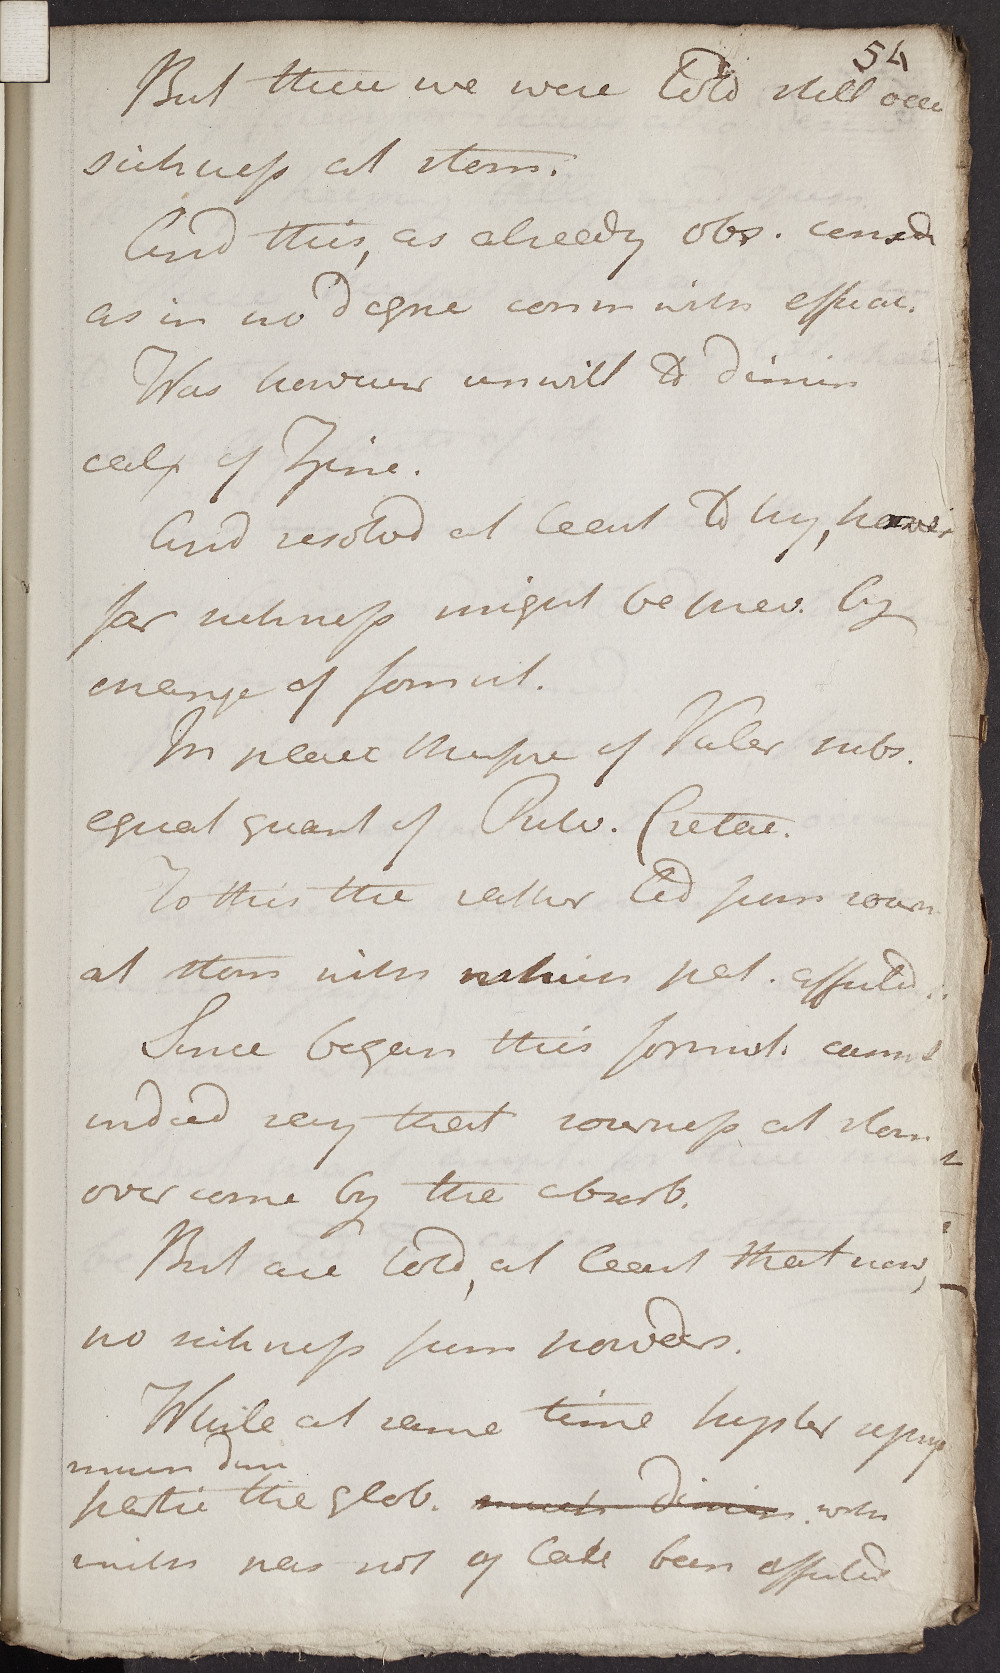 54
But there we were told still occ
sickness at stom.
And this, as already obs. consid
as in no degree conn with efficac.
Was however unwill to dimin
calx of Zinc.
And resolvd at least to try, how
far sickness might be prev. by
change of formul.
In place therefore of Valer subs.
equal quant of Pulv. Cretae.
To this the rather led from sourn
at stom with which pat. affected.
Since began this formul. cannot
indeed say that sourness at stom
overcome by the absorb.
But are told, at least that now,
no sickness from powders.
While at same time hyster
much dim
partic the glob. much dimin. with
which was not of late been affected